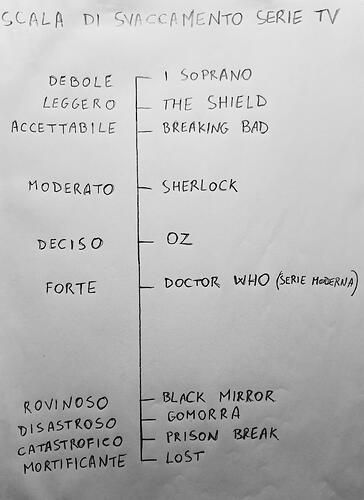 SCALA DI SVACCAMENTO SERIE TV
DEBOLE I SOPRANO
LEGGERO THE SHIELD
ACCETTABILE BREAKING BAD
MODERATO SHERLOCK
DECISO OZ
FORTE DOCTOR WHO (SERIE MODERNA)
ROVINOSO BLACK MIRROR
DISASTROSO GOMORRA
CATASTROFICO PRISON BREAK
MORTIFICANTE LOST